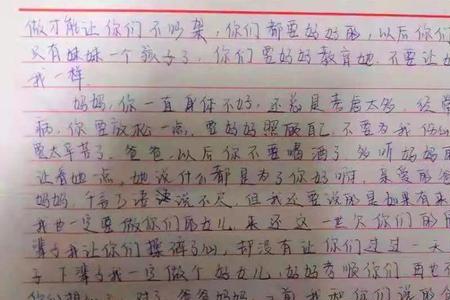 做才能让你们不吵架，你们都要好好的，以后你们
只有妹妹一个孩子了，你们要好好教育她，不要让她
我一样。
妈妈，你一直身体不好，还总是考虑太多，经常
病，你要放松一点，要好好照顾自己，不要为我伤心
要太辛苦了，爸爸，以后你不要喝酒了，多听妈妈的
让着她一点，她说什么都是为了你好啊，亲爱的爸
妈妈，千言万语说不尽，但我还要说的是如果有来
我也一定要做你们的女儿，来还这一世欠你们的
辈子我让你们操碎了心，却没有让你们过过一天
子下辈子我一定做个好女儿，好好孝顺你们再也
爸爸妈妈